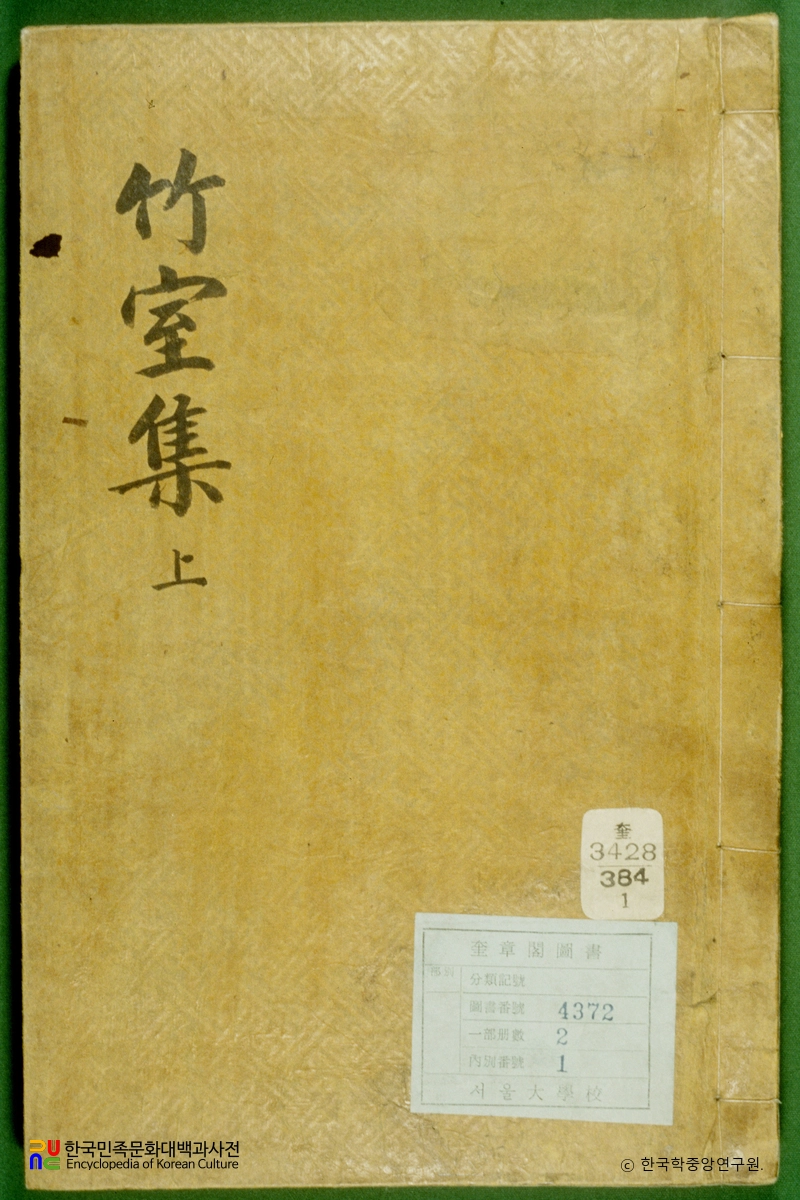 竹室集 上
奎
3428
384
1
奎章閣圖書
分類記號
圖書番號 4372
一部册數 2
內別番號 1
서울大學校
한국민족문화대백과사전
Encyclopedia of Korean Culture
© 한국학중앙연구원.